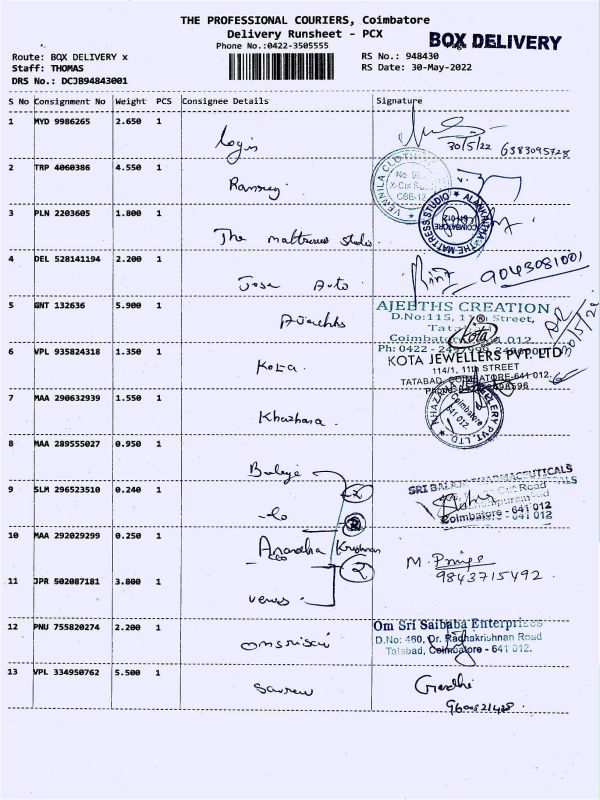 THE PROFESSIONAL COURIERS, Coimbatore
Delivery Runsheet - PCX
Phone No.:0422-3505555
BOX DELIVERY
Route: BOX DELIVERY x
RS No.: 948430
Staff: THOMAS
RS Date: 30-May-2022
DRS No.: DCJB94843001
S No Consignment No Weight PCS Consignee Details Signature
1 MYD 9986265 2.650 1 Login
30/5/22 6383095728
2 TRP 4060386 4.550 1
VENNILA CLOTH
No.
X-Cut Road
CBE-12
3 PLN 2203605 1.800 1 The mattress studio
ALANKATHA-THE MATTRESS STUDIO
COIMBATORE
4 DEL 528141194 2.200 1 Josa Auto
9043081001
5 GNT 132636 5.900 1
AJEETHS CREATION
D.No:115, 11th Street,
Coimbatore 012
Ph: 0422 - 24
30/5/22
6 VPL 935824318 1.350 1 Kota
Kota
KOTA JEWELLERS PVT. LTD
114/1, 11th STREET
TATABAD, COIMBATORE-641 012.
7 MAA 290632939 1.550 1 Khazhana
KHAZANA JEWELLERY PVT. LTD.
Coimbatore
641 012.
8 MAA 289555027 0.950 1 Balaji
SRI BALAJI PHARMACEUTICALS
Cut Road
Coimbatore - 641 012
9 SLM 296523510 0.240 1 -do
2
10 MAA 292029299 0.250 1 Anandha Krishnan
2
M.
9843715492
11 JPR 502087181 3.800 1 venus
12 PNU 755820274 2.200 1 omsrisai
Om Sri Saibaba Enterprises
D.No: 460, Dr. Radhakrishnan Road
Tatabad, Coimbatore - 641 012.
13 VPL 334950762 5.500 1